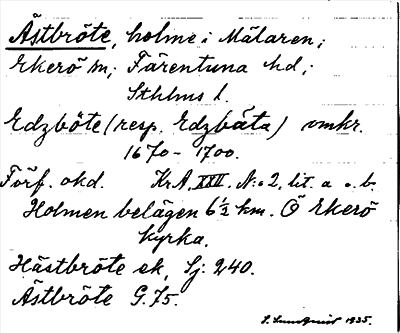 Ästbröte, holme i Mälaren;
Ekerö sn; Färentuna hd;
Sthlms l.
Edzböte (resp. Edzbäta) omkr.
1670-1700.
Förf. okd. Kr.A. XXII. N:o 2, lit. a o. b.
Holmen belägen 6 1/2 km. Ö Ekerö
kyrka.
Hästbröte ek, Sj: 240.
Ästbröte G. 75.
S. Lundqvist 1935.